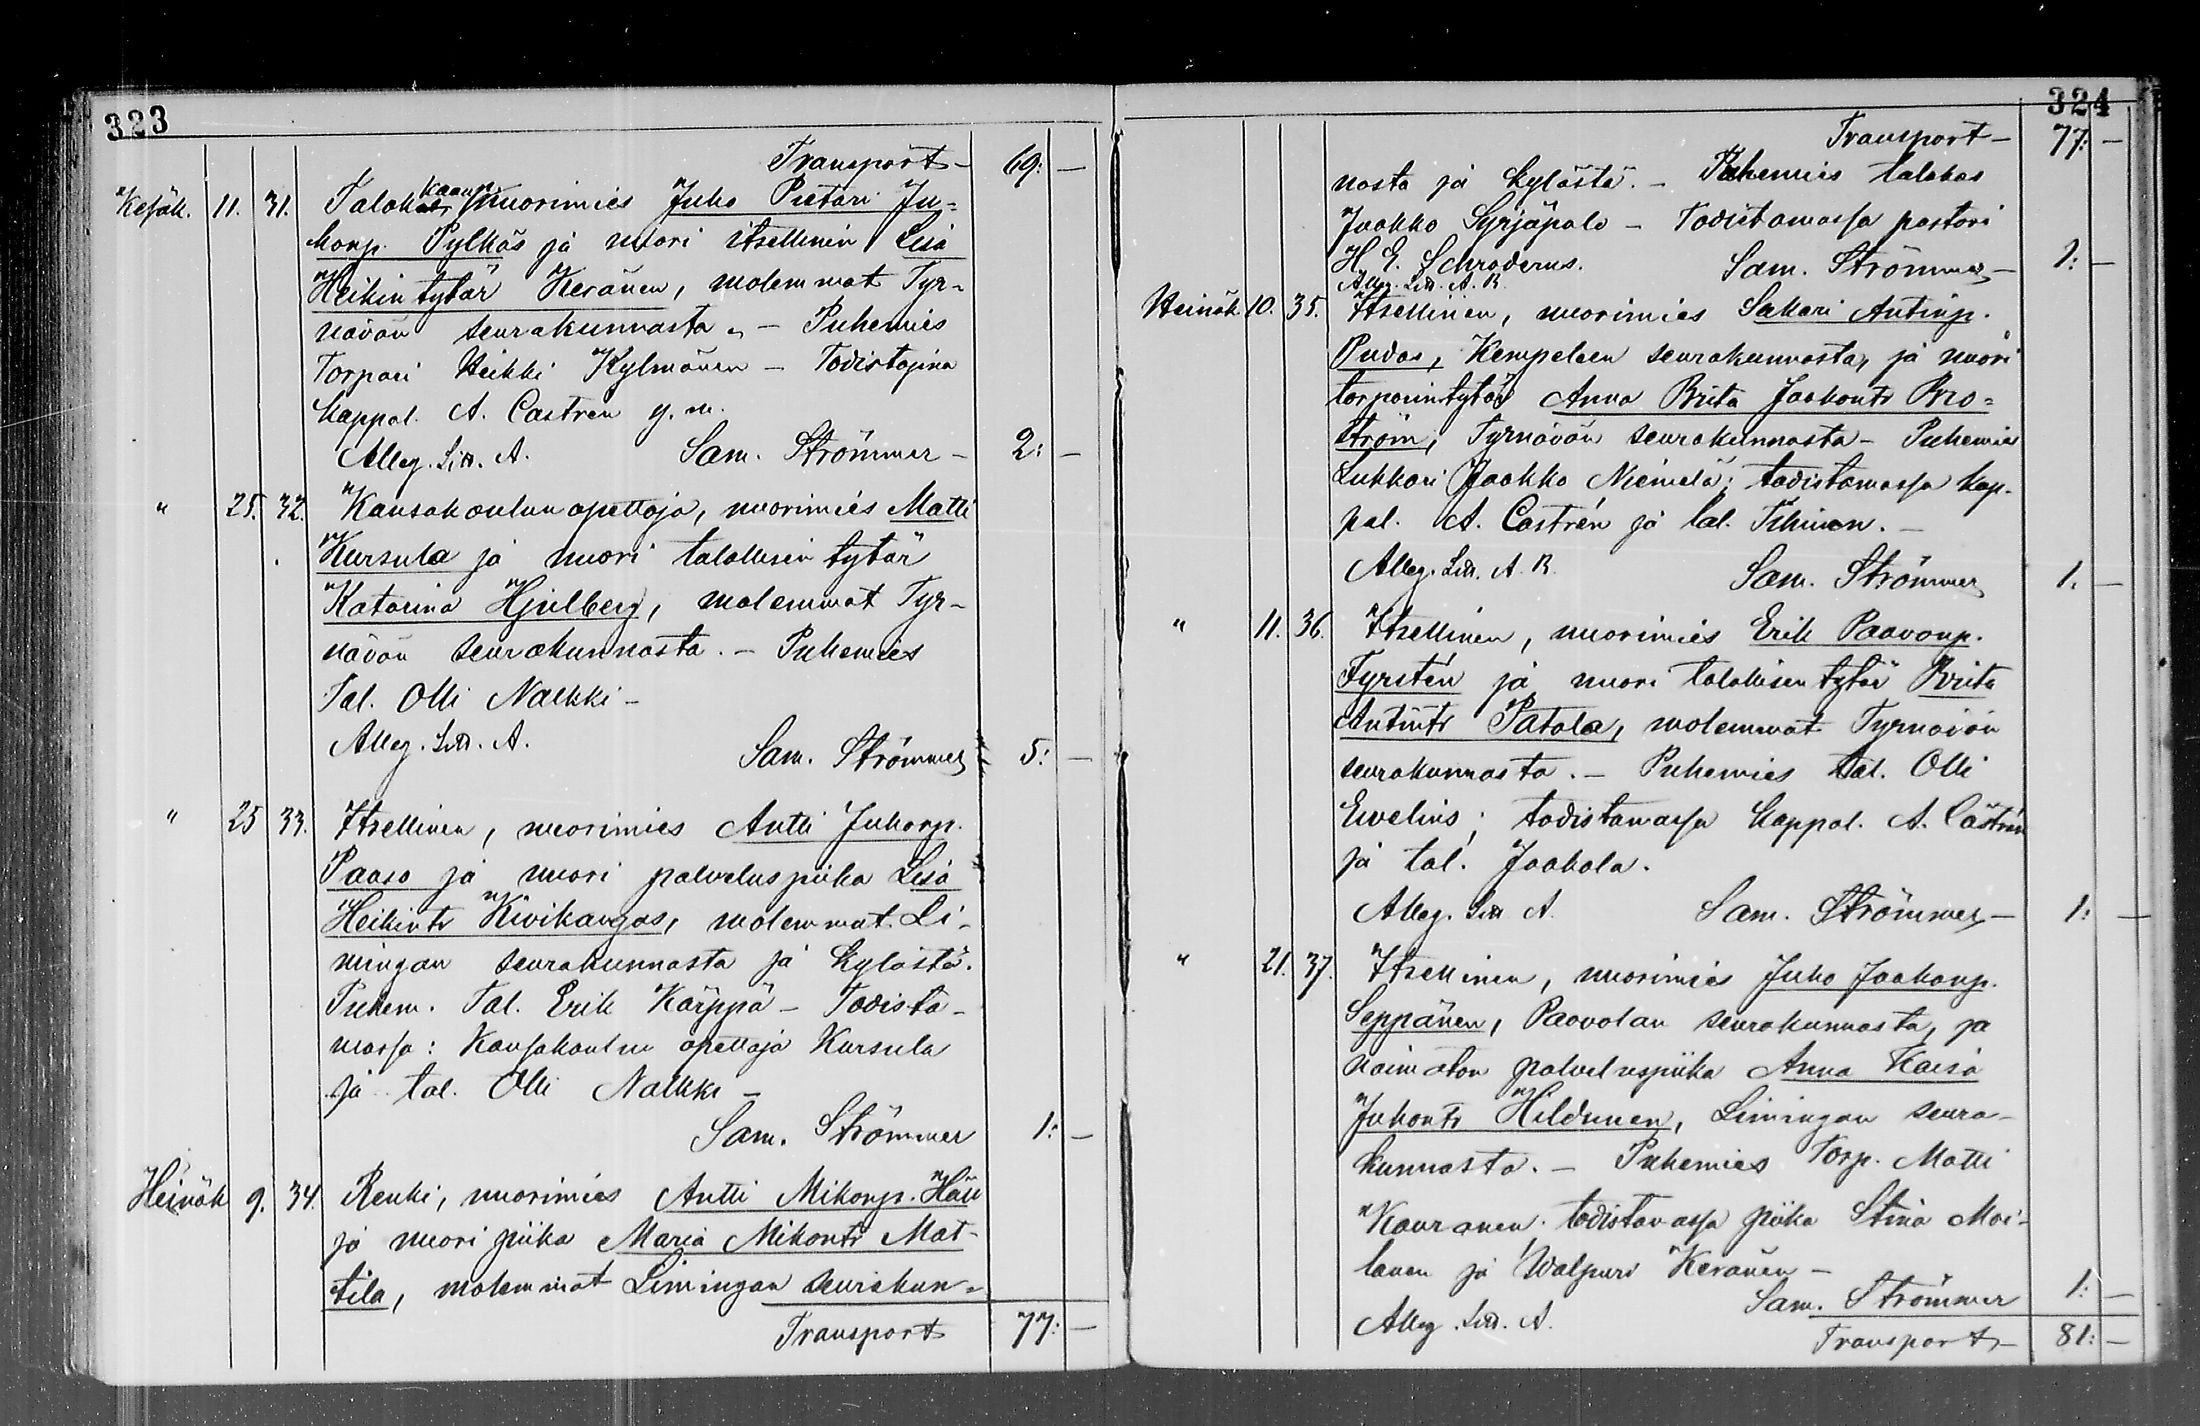 323
Transport – 69: –
Kesäk. 11. 31. Talok kaup. nuorimies Juho Pietari Ju=
honp. Pylkäs ja nuori itsellinen Lisa
Heikintytär Keränen, molemmat Tyr-
nävän seurakunnasta. – Puhemies
Torpari Heikki Kylmänen – Todistajina
kappal. A. Castren y. m.
Alleg. Litt. A. Sam. Strömmer – 2: –
" 25. 32. Kansakoulunopettaja, nuorimies Matti
Kursula ja nuori talollisen tytär
Katarina Hjelberg, molemmat Tyr-
nävän seurakunnasta. – Puhemies
Tal. Olli Nalkki –
Alleg. Litt. A. Sam. Strömmer 5: –
" 25 33. Itsellinen, nuorimies Antti Juhonp.
Paaso ja nuori palveluspiika Lisa
Heikintr Kivikangas, molemmat Li-
mingan seurakunnasta ja kylästä.
Puhem. Tal. Erik Karppä – Todista-
massa: Kansakoulun opettaja Kursula
ja tal. Olli Nalkki –
Sam. Strömmer 1: –
Heinäk 9. 34. Renki, nuorimies Antti Mikonp. Häli
ja nuori piika Maria Mikontr Mat-
tila, molemmat Limingan seurakun-
Transport 77: –
324
Transport – 77: –
nasta ja kylästä. – Puhemies talokas
Jaakko Syrjäpalo – Todistamassa pastori
H. E. Schroderus. Sam. Strömmer – 1: –
Alleg. Litt. A. B.
Heinäk 10. 35. Itsellinen, nuorimies Sakari Antinp.
Pudas, Kempeleen seurakunnasta, ja nuori
torparintytär Anna Brita Jaakontr Bro=
ström, Tyrnävän seurakunnasta – Puhemies
Lukkari Jaakko Niemelä; todistamassa kap-
pal. A. Castrén ja tal. –
Alleg. Litt. A. B. Sam. Strömmer 1. –
" 11. 36. Itsellinen, nuorimies Erik Paavonp.
Fyrstén ja nuori talollisen tytär Brita
Antintr Patala, molemmat Tyrnävän
seurakunnasta. – Puhemies tal. Olli
Ewelius; todistamassa kappal. A. Castrén
ja tal. Jaakola.
Alleg. Litt A. Sam. Strömmer – 1: –
" 21. 37. Itsellinen, nuorimies Juho Jaakonp.
Seppänen, Paavolan seurakunnasta, ja
naimaton palveluspiika Anna Kaisa
Juhontr Hildunen, Limingan seura-
kunnasta. – Puhemies Torp. Matti
Kauranen, todistamassa piika Stina Moi-
lanen ja Walpuri Keränen –
Sam. Strömmer 1: –
Alleg. Litt. A.
Transport – 81: –